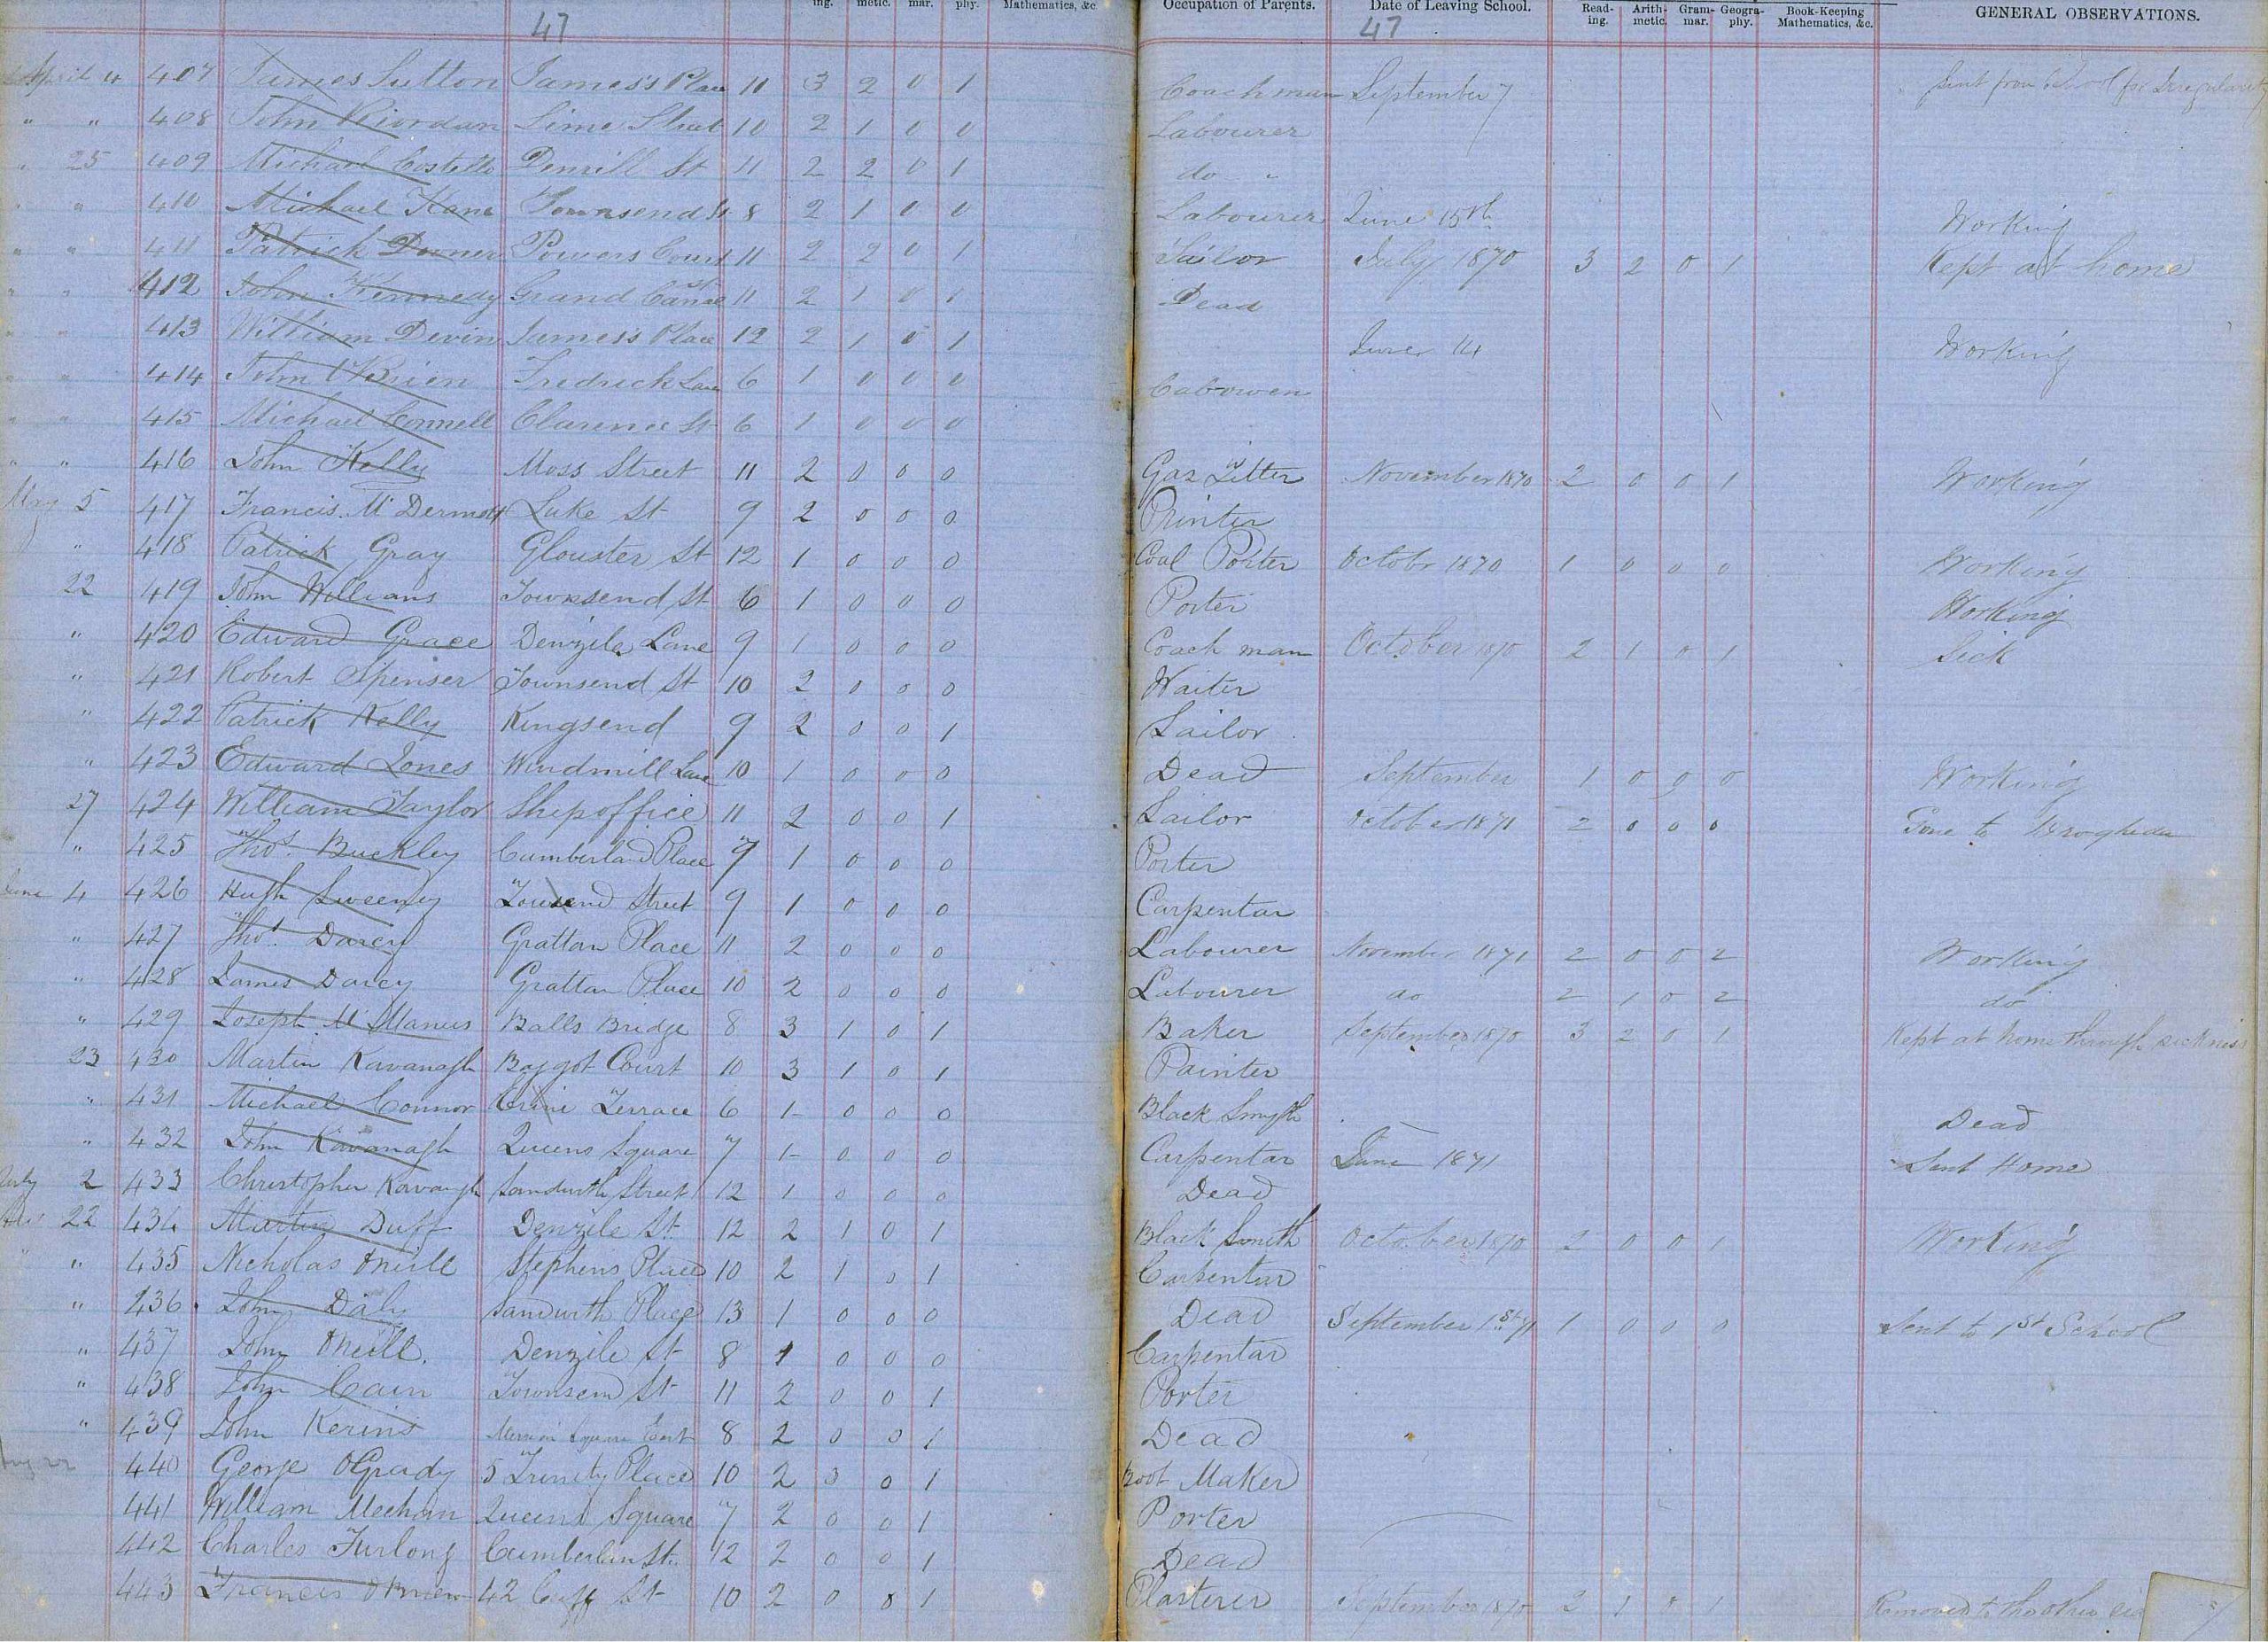 ing. metic. mar. phy. Mathematics, &c. Occupation of Parents. Date of Leaving School. Read-ing. Arith-metic. Gram-mar. Geogra-phy. Book-Keeping Mathematics, &c. GENERAL OBSERVATIONS.
47 47
April 4 407 James Sutton James's Place 11 3 2 0 1 Coachman September 7 Sent from School for Irregularity
" " 408 John Riordan Lime Street 10 2 1 0 0 Labourer
" 25 409 Michael Costello Denzill St 11 2 2 0 1 do "
" " 410 Michael Kane Townsend St 8 2 1 0 0 Labourer June 15th Working
" " 411 Patrick Powers Court 11 2 2 0 1 Sailor July 1870 3 2 0 1 Kept at home
" " 412 John Kennedy Grand Canal St 11 2 1 0 1 Dead
" " 413 William Devin James's Place 12 2 1 0 1 June 14 Working
" " 414 John OBrien Fredrick Lane 6 1 0 0 0 Cabowen
" " 415 Michael Connell Clarence St 6 1 0 0 0
" " 416 John Kelly Moss Street 11 2 0 0 0 Gas Fitter November 1870 2 0 0 1 Working
May 5 417 Francis McDermott Luke St 9 2 0 0 0 Printer
" 418 Patrick Gray Glouster St 12 1 0 0 0 Coal Porter Octobr 1870 1 0 0 0 Working
22 419 John Williams Townsend St 6 1 0 0 0 Porter Working
" 420 Edward Grace Denzile Lane 9 1 0 0 0 Coach man October 1870 2 1 0 1 Sick
" 421 Robert Spenser Townsend St 10 2 0 0 0 Waiter
" 422 Patrick Kelly Ringsend 9 2 0 0 1 Sailor
" 423 Edward Jones Windmill Lane 10 1 0 0 0 Dead September 1 0 0 0 Working
27 424 William Taylor Shipoffice 11 2 0 0 1 Sailor October 1871 2 0 0 0 Gone to Drogheda
" 425 Thos. Buckley Cumberland Place 7 1 0 0 0 Porter
June 4 426 Hugh Sweeney Townsend Street 9 1 0 0 0 Carpentar
" 427 Thos. Darcy Grattan Place 11 2 0 0 0 Labourer November 1871 2 0 0 2 Working
" 428 James Darcy Grattan Place 10 2 0 0 0 Labourer do 2 1 0 2 do
" 429 Joseph McManus Balls Bridge 8 3 1 0 1 Baker September 1870 3 2 0 1 Kept at home through sickness
23 430 Martin Kavanagh Baggot Court 10 3 1 0 1 Painter
" 431 Michael Connor Erine Terrace 6 1 0 0 0 Black Smyth Dead
" 432 John Kavanagh Queens Square 7 1 0 0 0 Carpentar June 1871 Sent Home
July 2 433 Christopher Kavanagh Sandwith Street 12 1 0 0 0 Dead
22 434 Martin Duff Denzile St. 12 2 1 0 1 Black Smith October 1870 2 0 0 1 Working
" 435 Nicholas Oneill Stephens Place 10 2 1 0 1 Carpentar
" 436 John Daly Sandwith Place 13 1 0 0 0 Dead September 1st 71 1 0 0 0 Sent to 1st School
" 437 John Oneill. Denzile St 8 1 0 0 0 Carpentar
" 438 John Cain Townsend St 11 2 0 0 1 Porter
" 439 John Kerins Merrion Square East 8 2 0 0 1 Dead
Aug 22 440 George OGrady 5 Trinity Place 10 2 0 0 1 Boot Maker
441 William Meehan Queens Square 7 2 0 0 1 Porter
442 Charles Furlong Cumberlan St. 12 2 0 0 1 Dead
443 Francis OBrien 42 Cuff St 10 2 0 0 1 Plasterer September 1870 2 1 0 1 Removed to the other